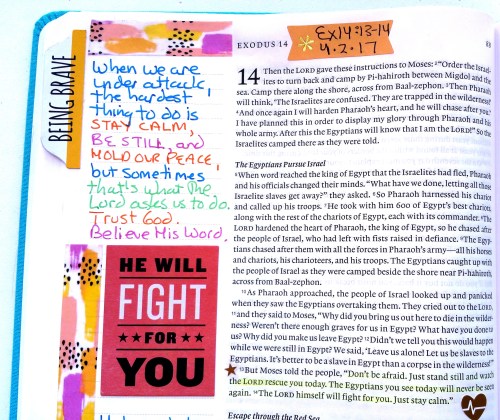 BEING BRAVE
When we are
under attack,
the hardest
thing to do is
STAY CALM,
BE STILL, and
HOLD OUR PEACE,
but sometimes
that's what the
Lord asks us to do.
Trust God.
Believe His Word.
HE WILL
FIGHT
FOR
YOU
EXODUS 14
Ex 14:13-14
4.2.17
14 Then the LORD gave these instructions to Moses: 2"Order the Israel-
ites to turn back and camp by Pi-hahiroth between Migdol and the
sea. Camp there along the shore, across from Baal-zephon. 3Then Pharaoh
will think, 'The Israelites are confused. They are trapped in the wilderness!'
4And once again I will harden Pharaoh's heart, and he will chase after you.
I have planned this in order to display my glory through Pharaoh and his
whole army. After this the Egyptians will know that I am the LORD!" So the
Israelites camped there as they were told.
The Egyptians Pursue Israel
5When word reached the king of Egypt that the Israelites had fled, Pharaoh
and his officials changed their minds. "What have we done, letting all those
Israelite slaves get away?" they asked. 6So Pharaoh harnessed his chariot
and called up his troops. 7He took with him 600 of Egypt's best chariots,
along with the rest of the chariots of Egypt, each with its commander. 8The
LORD hardened the heart of Pharaoh, the king of Egypt, so he chased after
the people of Israel, who had left with fists raised in defiance. 9The Egyp-
tians chased after them with all the forces in Pharaoh's army—all his horses
and chariots, his charioteers, and his troops. The Egyptians caught up with
the people of Israel as they were camped beside the shore near Pi-hahiroth,
across from Baal-zephon.
10As Pharaoh approached, the people of Israel looked up and panicked
when they saw the Egyptians overtaking them. They cried out to the LORD,
11and they said to Moses, "Why did you bring us out here to die in the wilder-
ness? Weren't there enough graves for us in Egypt? What have you done to
us? Why did you make us leave Egypt? 12Didn't we tell you this would happen
while we were still in Egypt? We said, 'Leave us alone! Let us be slaves to the
Egyptians. It's better to be a slave in Egypt than a corpse in the wilderness!'"
13But Moses told the people, "Don't be afraid. Just stand still and watch
the LORD rescue you today. The Egyptians you see today will never be seen
again. 14The LORD himself will fight for you. Just stay calm."
Escape through the Red Sea